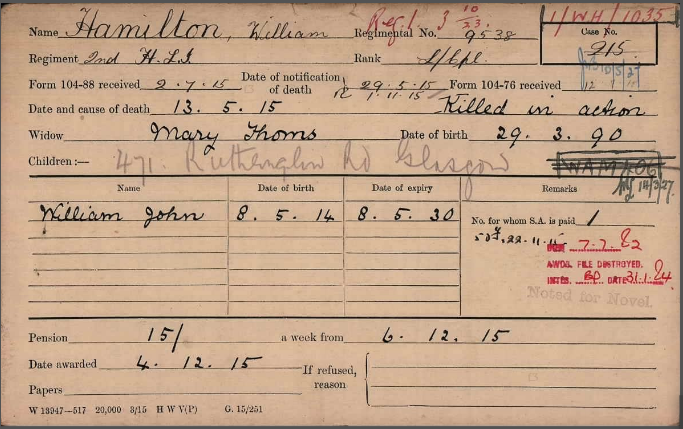 Name Hamilton, William Regimental No. 9538
Reg. 1. 3 10/23.
1/WH/1035
Case No.
215
Regiment 2nd H.L.I. Rank L/Cpl.
Form 104-88 received 2.7.15 Date of notification of death 29.5.15 Form 104-76 received
1.11.15
Date and cause of death 13.5.15 Killed in action
Widow Mary Thoms Date of birth 29.3.90
Children :— 471. Rutherglen Rd Glasgow
Name Date of birth Date of expiry Remarks
William John 8.5.14 8.5.30
No. for whom S.A. is paid 1
22.11.15
7.7.82
AWDS. FILE DESTROYED.
INTLS. BP DATE 31.1.84
Noted for Novel
Pension 15/ a week from 6.12.15
Date awarded 4.12.15 If refused, reason
Papers
W 13947—517 20,000 3/15 H W V(P) G. 15/251